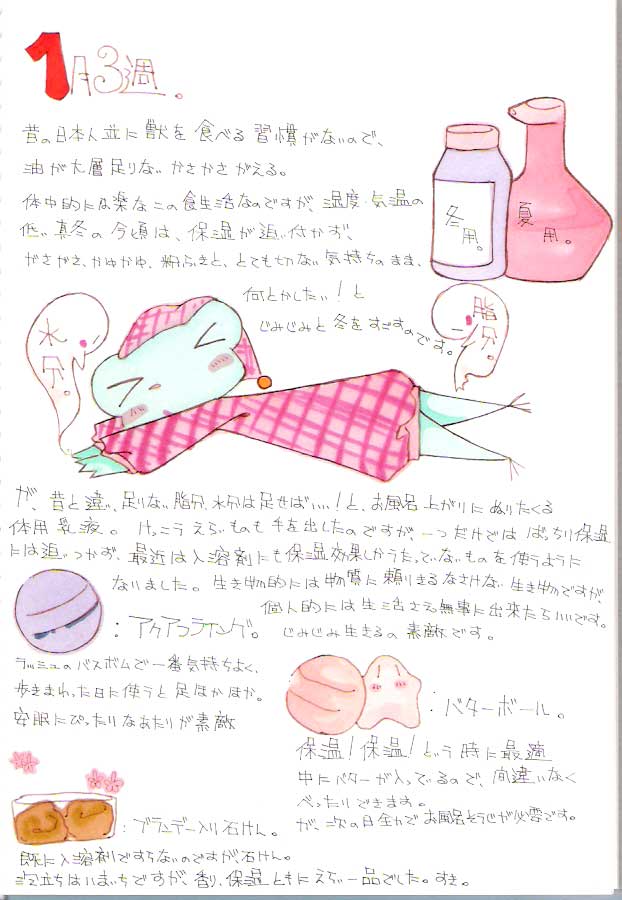 1月3週。
昔の日本人並に獣を食べる習慣がないので、
油が大層足りない かさかさがえる。
体中的には楽なこの食生活なのですが、湿度・気温の
低い真冬の今頃は、保湿が追い付かず、
がさがさ、かゆかゆ、粉ふきと、とても切ない気持ちのまま、
何とかしたい!と
じみじみと冬をすごすのです。
冬用。
夏用。
水分。
脂分。
が、昔と違い、足りない脂分、水分は足せばいい!と、お風呂上がりにぬりたくる
体用乳液。けっこうえらいものも手を出したのですが、一つだけでは ばっちり保湿
には追いつかず、最近は入溶剤にも保湿効果しかうたっていないものを使うように
なりました。生き物的には物質に頼りきるなさけない生き物ですが、
個人的には生活さえ無事に出来たらいいです。
じみじみ生きるの素敵です。
:アクアフライング。
ラッシュのバスボムで一番気持ちよく、
歩きまわった日に使うと足ほかほか。
安眠にぴったりなあたりが素敵
:バターボール。
保温!保温!という時に最適
中にバターが入っているので、間違いなく
べったりできます。
が、次の日全力でお風呂そうじが必要です。
:ブランデー入り石けん。
既に入溶剤ですらないのですが、石けん。
泡立ちはいまいちですが、香り、保湿ともにえらい一品でした。すき。